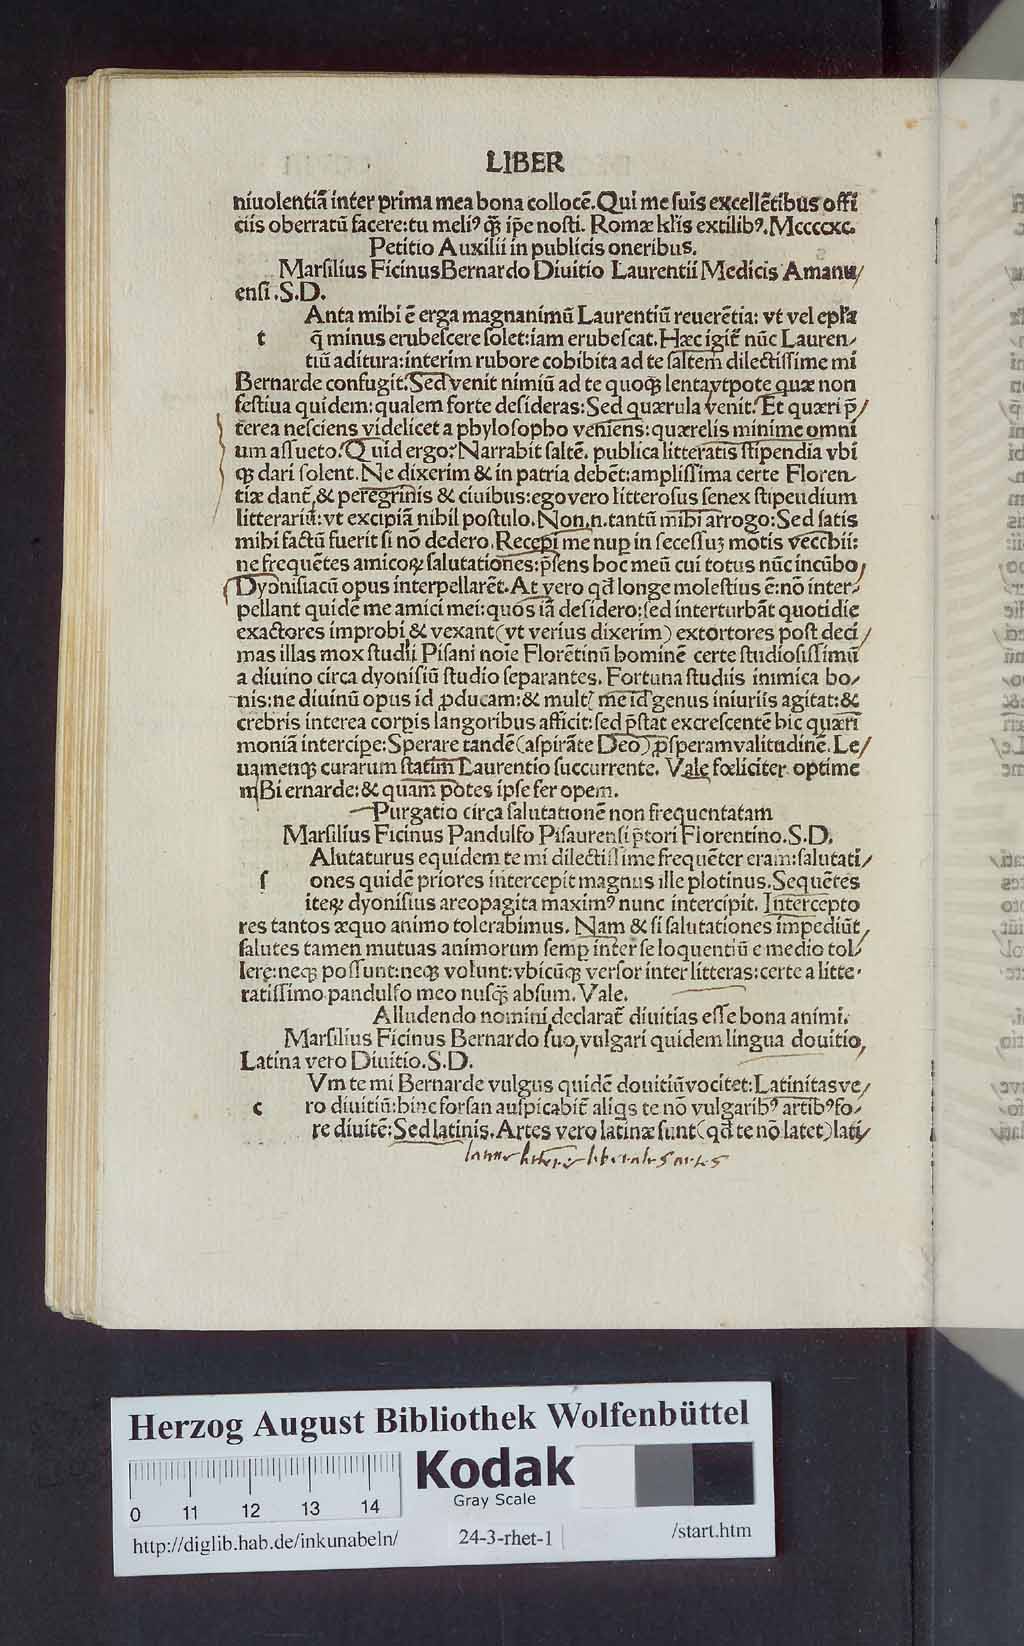 LIBER
niuolentiā inter prima mea bona collocē. Qui me suis excellētibus offi
ciis oberratū facere: tu meliꝰ q̄ȝ ip̄e nosti. Romæ kl̄is extilibꝰ. Mccccxc.
Petitio Auxilii in publicis oneribus.
Marsilius Ficinus Bernardo Diuitio Laurentii Medicis Amanu/
ensi. S. D.
Anta mihi ē erga magnanimū Laurentiū reuerētia: vt vel ep̄l̄a
t q̄ minus erubescere solet: iam erubescat. Hæc igit̄ nūc Lauren/
tiū aditura: interim rubore cohibita ad te saltem dilectissime mi
Bernarde confugit. Sed venit nimiū ad te quoqȝ lenta vtpote quæ non
festiua quidem: qualem forte desideras: Sed quærula venit. Et quæri p̄/
terea nesciens videlicet a phylosopho veniens: quærelis minime omni
um assueto. Quid ergo? Narrabit saltē. publica litteratis stipendia vbi
qȝ dari solent. Ne dixerim & in patria debēt: amplissima certe Floren/
tiæ dant̄, & peregrinis & ciuibus: ego vero litterosus senex stipeudium
litterariū: vt excipiā nihil postulo. Non. n. tantū mihi arrogo: Sed satis
mihi factū fuerit si nō dedero. Recepi me nup̲ in secessuȝ motis vecchii:
ne frequētes amicoꝝ salutationes: p̄sens hoc meū cui totus nūc incūbo/
Dyonisiacū opus interpellarēt. At vero qd̄ longe molestius ē: nō inter/
pellant quidē me amici mei: quos iā desidero: sed interturbāt quotidie
exactores improbi & vexant (vt verius dixerim) extortores post deci/
mas illas mox studii Pisani noīe Florētinū hominē certe studiosissimū
a diuino circa dyonisiū studio separantes. Fortuna studiis inimica bo/
nis: ne diuinū opus id ꝓducam: & mult̄ me id genus iniuriis agitat: &
crebris interea corp̲is langoribus afficit: sed p̄stat excrescentē hic quæri
moniā intercip̲e: Sperare tandē (aspirāte Deo) ꝓsperam valitudinē. Le/
uamenqȝ curarum statim Laurentio succurrente. Vale fœliciter optime
m Bi ernarde: & quam potes ipse fer opem.
Purgatio circa salutationē non frequentatam
Marsilius Ficinus Pandulfo Pisaurensi p̄tori Florentino. S. D.
Alutaturus equidem te mi dilectissime frequēter eram: salutati/
s ones quidē priores intercepit magnus ille plotinus. Sequētes
iteꝝ dyonisius areopagita maximꝰ nunc intercipit. Intercepto
res tantos æquo animo tolerabimus. Nam & si salutationes impediūt/
salutes tamen mutuas animorum semp̲ inter se loquentiū e medio tol/
lere: neqȝ possunt: neqȝ volunt: vbicūqȝ versor inter litteras: certe a litte-
ratissimo pandulfo meo nusq̄ȝ absum. Vale.
Alludendo nomini, declarat̄ diuitias esse bona animi.
Marsilius Ficinus Bernardo suo, vulgari quidem lingua douitio,
Latina vero Diuitio. S. D.
Vm te mi Bernarde vulgus quidē douitiū vocitet: Latinitas ve/
c ro diuitiū: hinc forsan auspicabit̄ aliqs te nō vulgaribꝰ artibꝰ fo/
re diuitē: Sed latinis. Artes vero latinæ sunt (qd̄ te nō latet) lati/
liberales artes
Herzog August Bibliothek Wolfenbüttel
0 11 12 13 14
Kodak
Gray Scale
http://diglib.hab.de/inkunabeln/ 24-3-rhet-1 /start.htm